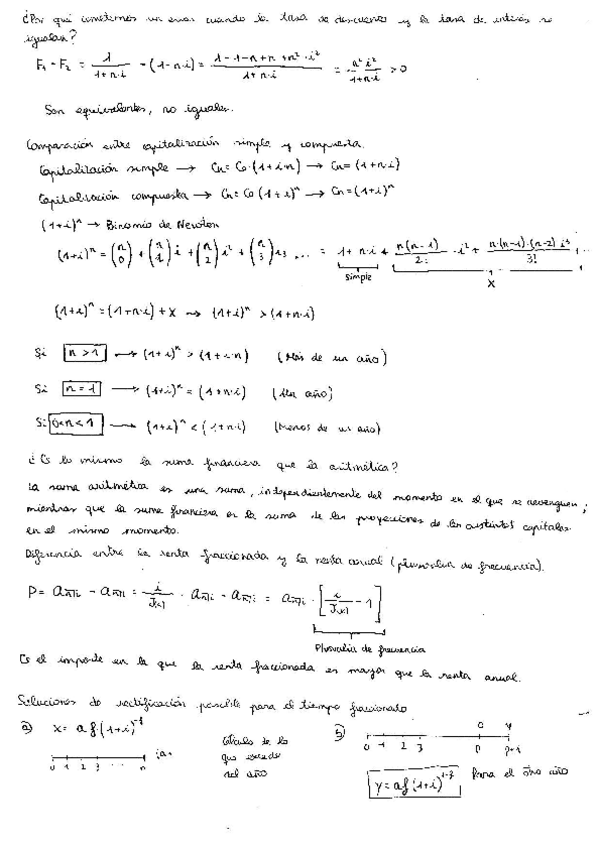 ¿Por qué cometemos un error cuando la tasa de descuento y la tasa de interés se
igualan?
F₁ - F₂ = 1/(1+n·i) - (1-n·i) = (1-1-n+n+n²·i²)/(1+n·i) = n²i²/(1+n·i) > 0
Son equivalentes, no iguales.
Comparación entre capitalización simple y compuesta.
Capitalización simple → Cn = Co·(1+i·n) → Cn = (1+n·i)
Capitalización compuesta → Cn = Co(1+i)ⁿ → Cn = (1+i)ⁿ
(1+i)ⁿ → Binomio de Newton
(1+i)ⁿ = (n 0) + (n 1) i + (n 2) i² + (n 3) i3 ... = 1 + n·i + n(n-1)/2! · i² + n·(n-1)·(n-2) i³/3! + ...
simple
X
(1+i)ⁿ = (1+n·i) + X → (1+i)ⁿ > (1+n·i)
Si n > 1 → (1+i)ⁿ > (1+i·n) (Más de un año)
Si n = 1 → (1+i)ⁿ = (1+n·i) (Un año)
Si 0<n<1 → (1+i)ⁿ < (1+n·i) (Menos de un año)
¿Es lo mismo la suma financiera que la aritmética?
La suma aritmética es una suma, independientemente del momento en el que se devenguen;
mientras que la suma financiera es la suma de las proyecciones de los distintos capitales
en el mismo momento.
Diferencia entre la renta fraccionada y la renta anual (plusvalía de frecuencia).
P = - = i/J(k) · - = · [i/J(k) - 1]
Plusvalía de frecuencia
Es el importe en la que la renta fraccionada es mayor que la renta anual.
Soluciones de rectificación posible para el tiempo fraccionado
a) X = a f·(1+i)
0 1 2 3 ... n
Cálculo de lo
que excede
del año
b)
0 1 2 3
p p+1
Y = af(1+i)
Para el otro año